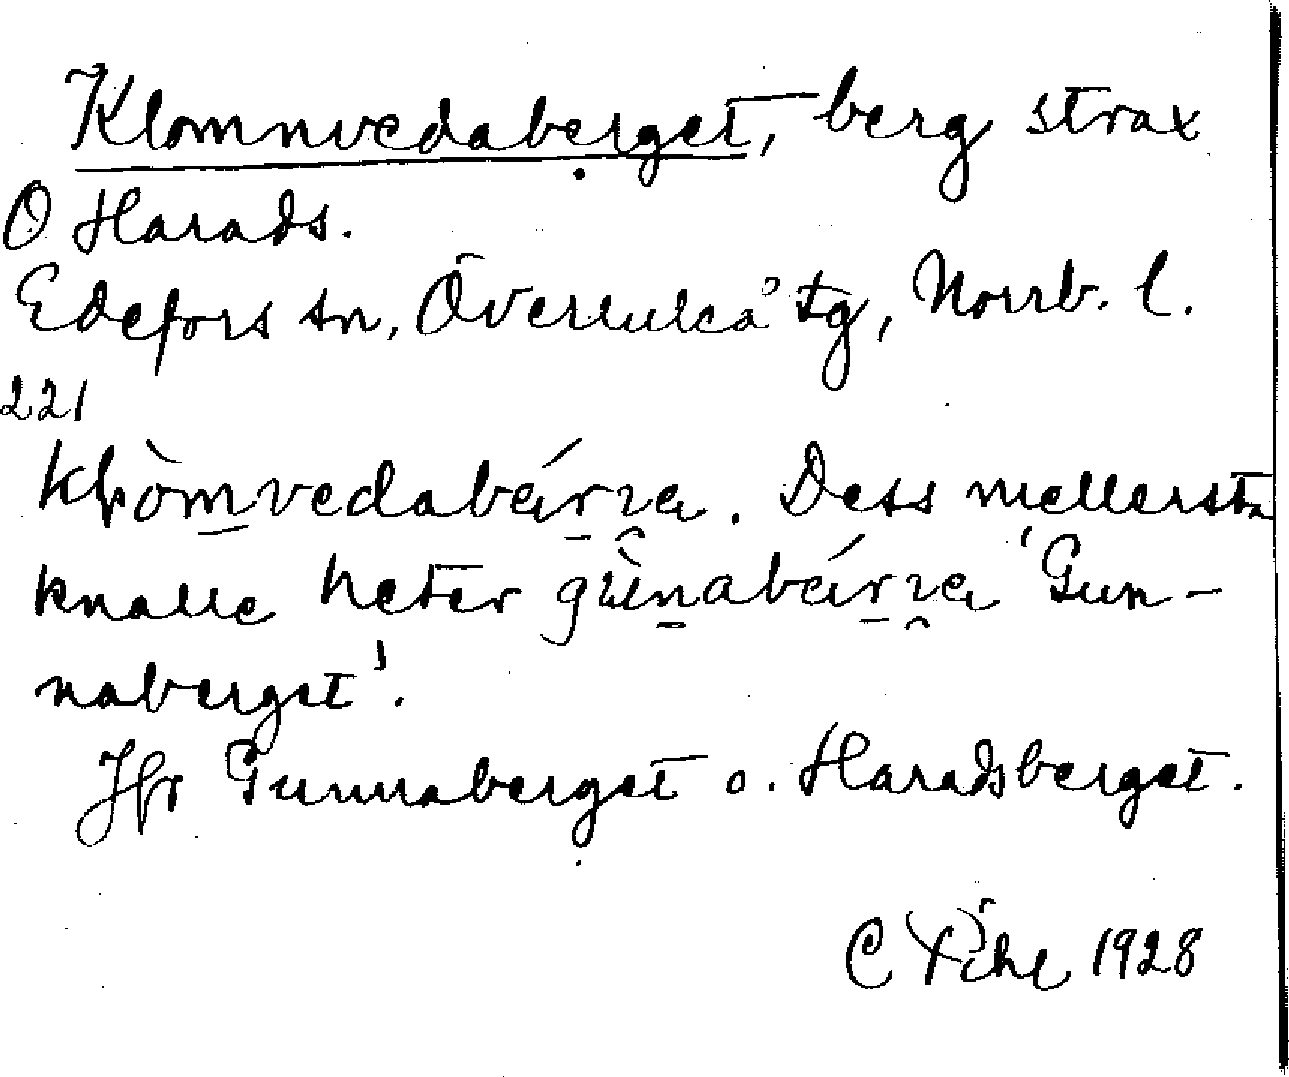 Klomnvedaberget, berg strax
O Harads.
Edefors sn, Överluleå tg, Norrb. l.
221
Dess mellersta
knalle heter 'Gun-
naberget'.
Jfr Gunnaberget o. Haradsberget.
C 1928